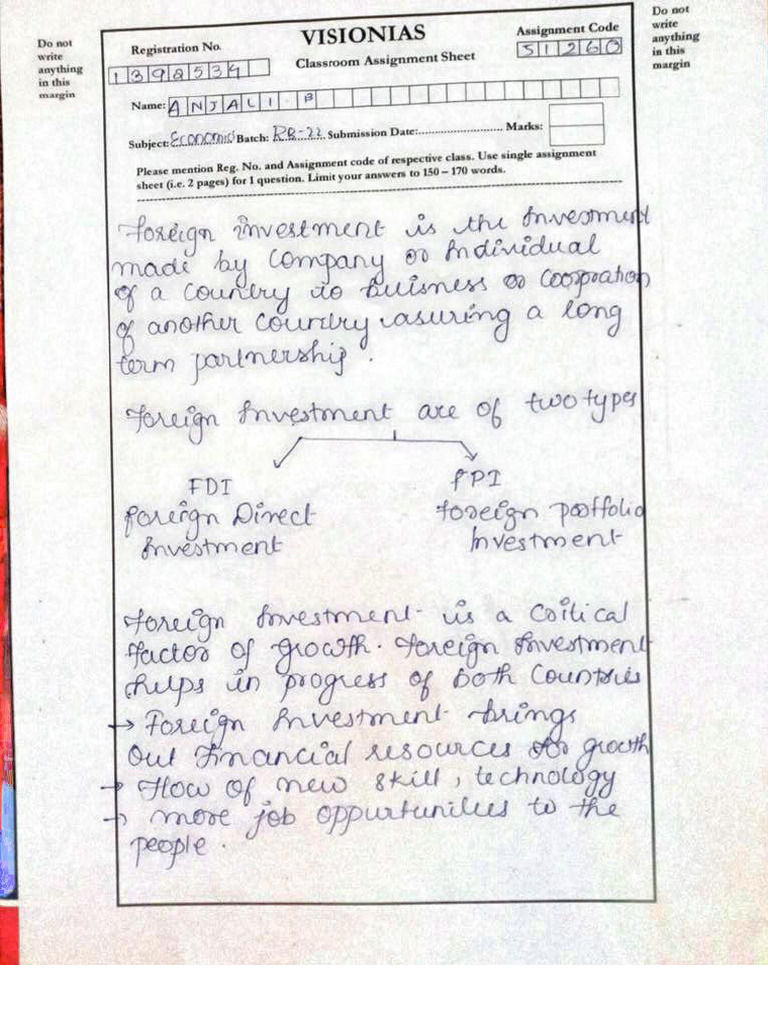 Do not
write
anything
in this
margin
VISIONIAS
Registration No.
1392534
Classroom Assignment Sheet
Assignment Code
51260
Do not
write
anything
in this
margin
Name: ANJALI B
Subject: Economics Batch: RB-22 Submission Date: Marks:
Please mention Reg. No. and Assignment code of respective class. Use single assignment
sheet (i.e. 2 pages) for 1 question. Limit your answers to 150 – 170 words.
Foreign investment is the Investment
made by Company or Individual
of a Country to buisness or Cooporation
of another Country asuring a long
term partnership.
Foreign Investment are of two types
FDI
Foreign Direct
Investment
FPI
Foreign portfolio
Investment
Foreign Investment is a Critical
factor of growth. Foreign Investment
helps in progress of both Countries
→ Foreign Investment brings
Out Financial resources for growth
→ Flow of new skill, technology
→ more job oppurtunities to the
people.